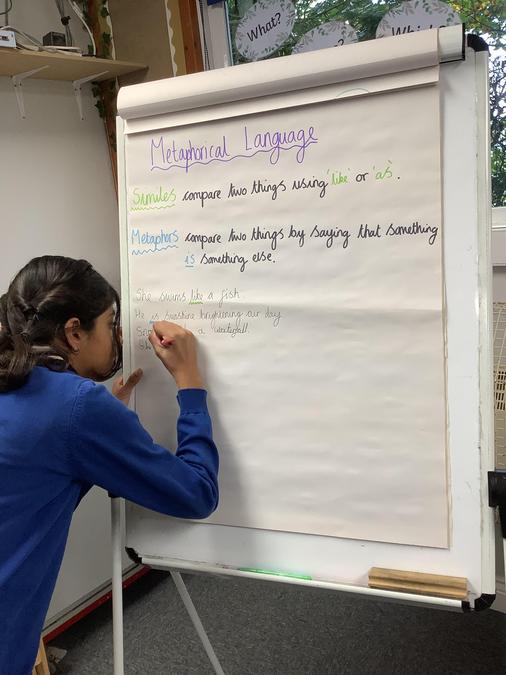 What?
?
Which
Metaphorical Language
Similes compare two things using 'like' or 'as'.
Metaphors compare two things by saying that something
is something else.
She swims like a fish.
He is sunshine brightening our day
a waterfall.